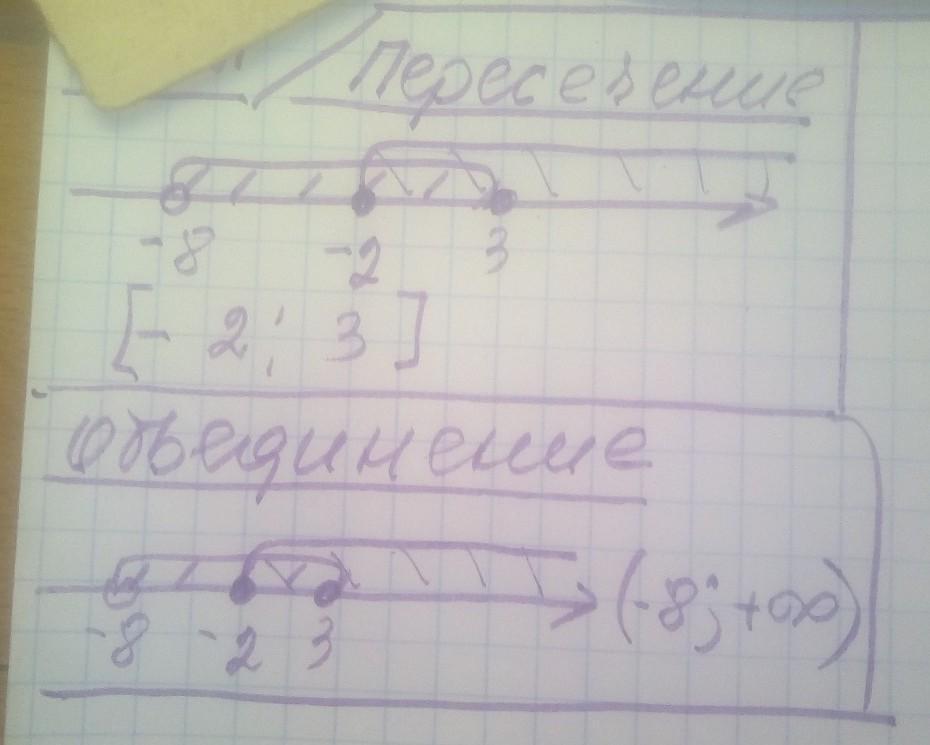 Пересечение
-8 -2 3
[- 2; 3]
Объединение
(-8; +∞)
-8 -2 3